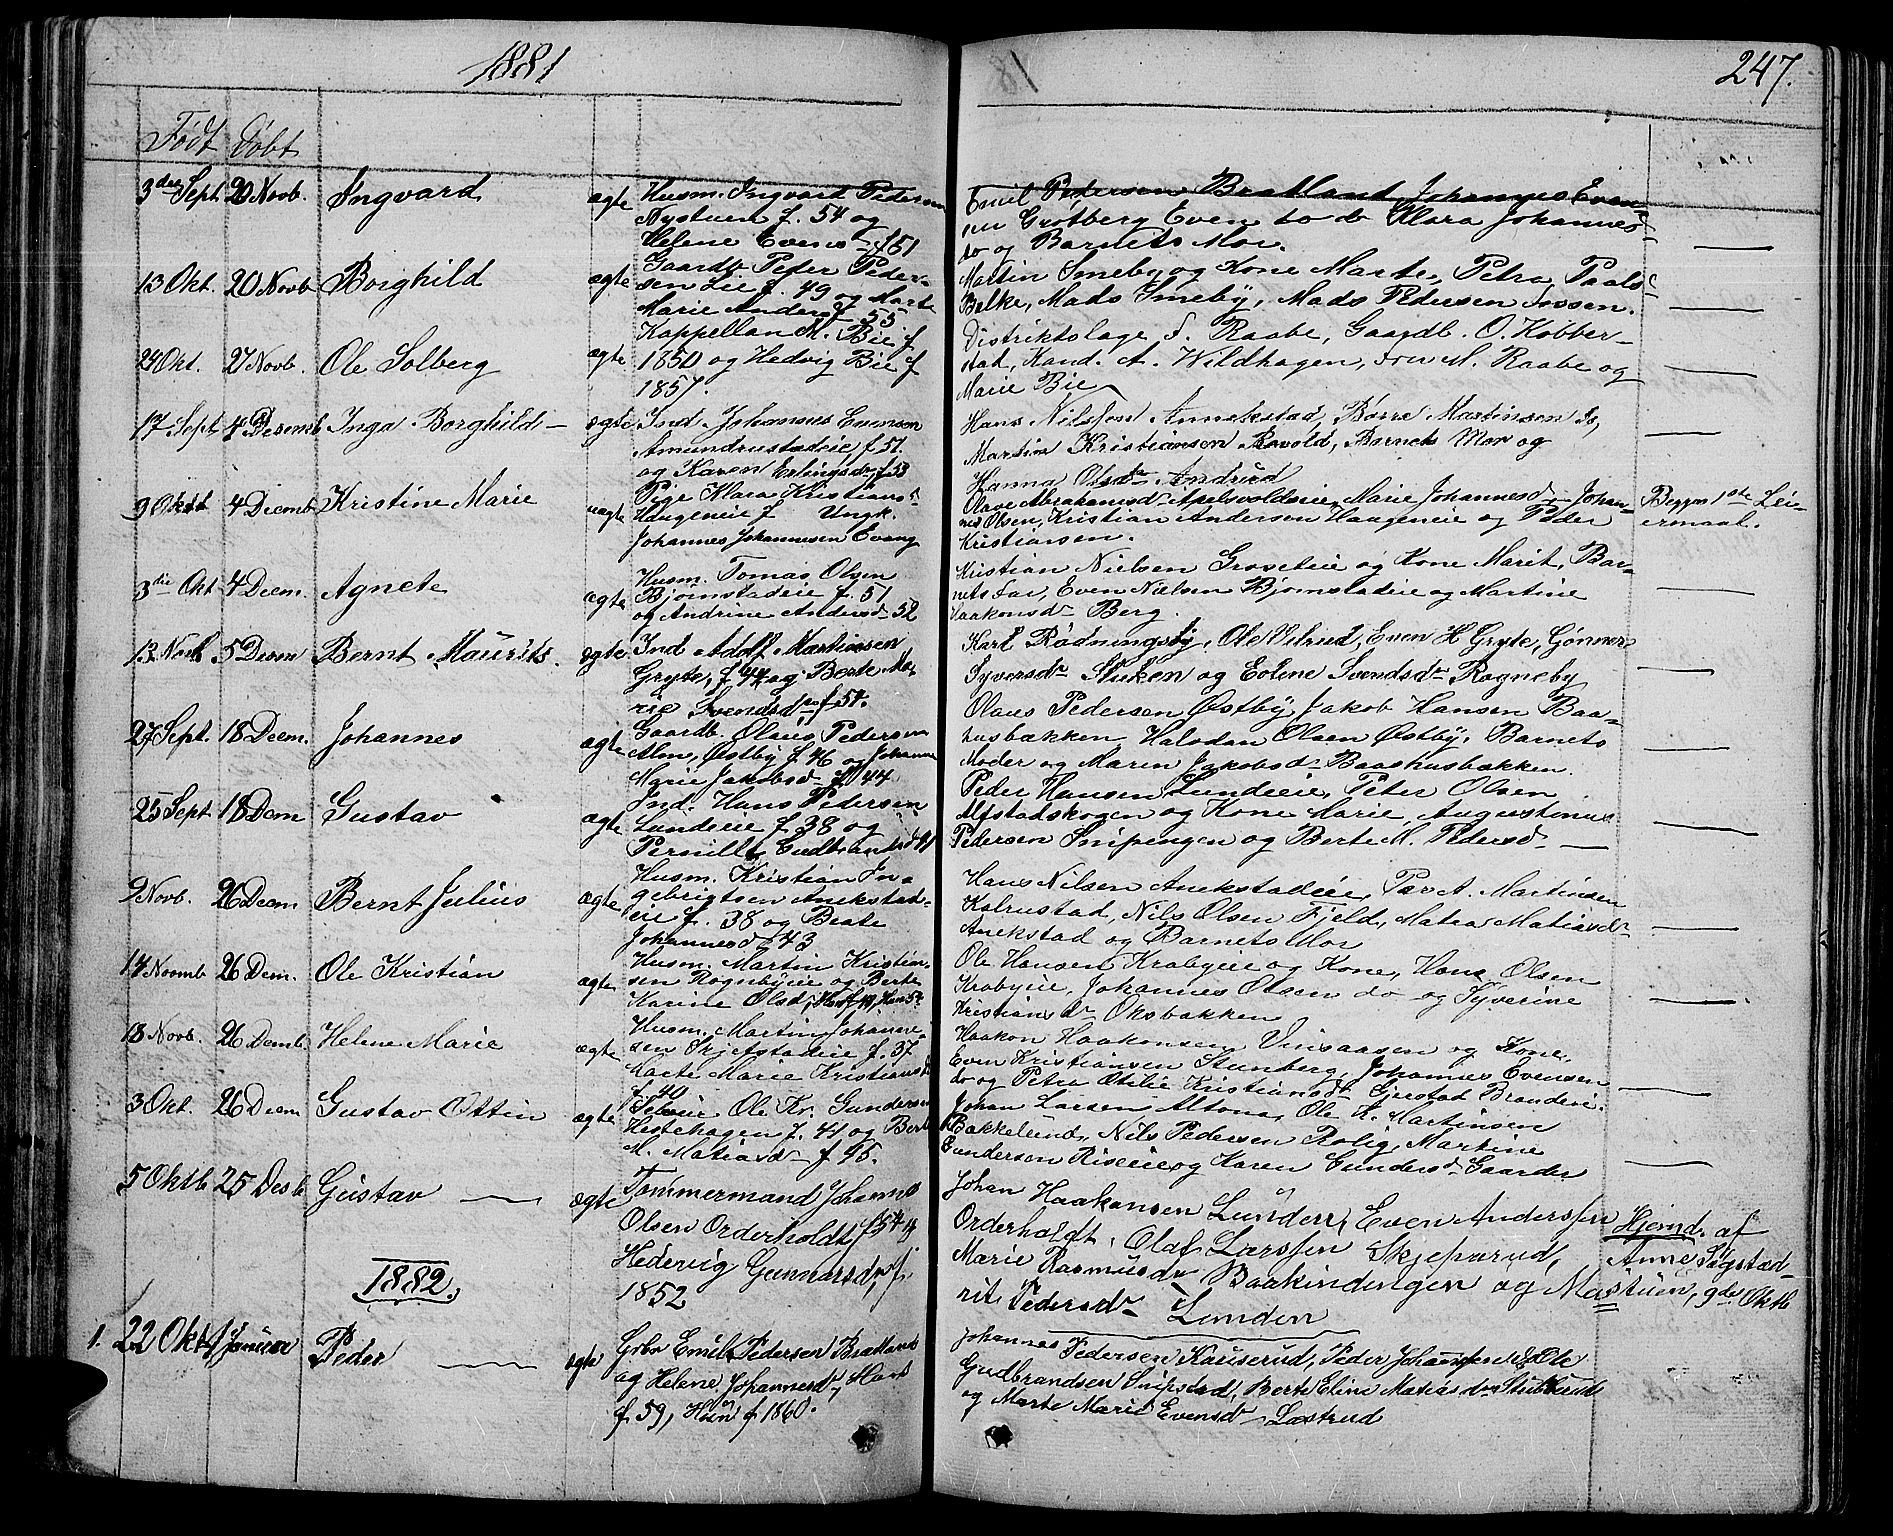 1881
247.
Født Døbt
3die Sept 20 Novb. Ingvard ægte Husm. Ingvart Pedersen
Nystuen f. 54 og
Helene Evensd f 51
Emil Pedersen Bratland, Johannes Even-
sen Grotberg Even do do Klara Johannesd
do og Barnets Mor.
13 Okt. 20 Novb Borghild ægte Gaardb Peter Peder-
sen Lie f. 49 og Marte
Marie Andersd 55
Martin Smeby og Kone Marte, Petra Paals-
Balke, Mads Smeby, Mads Pedersen Fossen.
2 Okt. 27 Novb. Ole Solberg ægte Kappellan M. Bie f
1850 og Hedvig Bie f
1857.
Distriktslæge F. Raabe, Gaardb. O. Kobber-
stad, Kand. A. Wildhagen, Fru M. Raabe og
Marie Bie
17 Sept 4 Desemb Inga Borghild — ægte Ind. Johannes Evensen
Amundrustadeie f 51.
og Karen Erlingsdr f. 53
Hans Nilssen Annekstad, Børre Martinsen do,
Martin Kristiansen Ravold, Barnets Mor og
Hanna Olsdtr Andrud
9 Okbt 4 Decmb Kristine Marie uægte Pige Klara Kristiansd
Haugeneie f Ungk.
Johannes Johannesen Evang
Olave Abrahamsd Apelsvoldeie, Marie Johannesd — Johan-
nes Olsen, Kristian Andersen Haugeneie og Peder
Kristiansen.
Begges 1ste Lei-
ermaal.
3die Okt 4 Decem. Agnete ægte Husm. Tomas Olsen
Bjørnstadeie f. 51
og Andrine Andersd 52
Kristian Nielsen Groseteie og Kone Marit, Bar-
nets Far, Even Nielsen Bjørnstadeie og Martine
Haakonsdr Berg.
13 Novb 5 Decem Bernt Maurits. ægte Ind Adolf Martinsen
Gryte, f 44 og Berte Ma-
rie Svendsdtr f 54.
Karl Rødningsby, Ole Vilrud, Even H Gryte, Gønner
Syversdr Stuken og Eolene Svendsdr Rogneby
27 Sept. 18 Decem. Johannes ægte Gaardb. Olaus Pedersen
Alm, Østby f. 46 og Johanne
Marie Jakobsd f 44
Olaus Pedersen Østby, Jakob Hansen Baa-
husbakken Halvdan Olsen Østby, Barnets
Moder og Maren Jakobsd Baashusbakken.
25 Sept 18 Decm Gustav ægte Ind. Hans Pedersen
Lundeie f 38 og
Pernille Gudbrandsd 41
Peder Hansen Lundeie, Peter Olsen
Alfstadskogen og Kone Marie, Augustinus
Pedersen Snipengen og Berte M. Pedersd —
9 Novb. 26 Decem Bernt Julius ægte Husm. Kristian In-
gebrigtsen Anekstad-
eie f. 38 og Beate
Johannesd 43
Hans Nilsen Anekstadeie, Per A. Martinsen
Kolrustad, Nils Olsen Fjeld, Matea Matiasdr
Anekstad og Barnets Mor
14 Novmb 26 Dem. Ole Kristian ægte Husm. Martin Kristian-
sen Rognebyeie og Berte
Karine Olsd,
Ole Hansen Krabyeie og Kone, Hans Olsen
Krabyeie, Johannes Olsen do — og Syverine
Kristiansdr Oksbakken
18 Novb. 26 Demb. Helene Marie ægte Husm. Martin Johanne-
sen Skjefstadeie f. 37
Marte Marie Kristiansd
f 40
Haakon Haakonsen Vinsaasen og Kone,
Even Kristiansen Stenberg, Johannes Evensen
do og Petra Otilie Kristiansdr Gjerstad Branderi.
3 Okt. 26 Decm Gustav Ottin ægte Seleie Ole Kr. Gundersen
Hestehagen f. 44 og Berte
M. Matiasd — f 45.
Johan Larsen Altona, Ole A. Martinsen
Bakkelund, Nils Pedersen Rolig, Martine
Gundersen Riseeie og Karen Gundersd Gaarder
5 Oktb 25 Desb Gustav — ægte Tømmermand Johannes
Olsen Orderholdt f 54 og
Hedevig Gunnarsdr f.
1852
Johan Haakonsen Lunden, Even Anderssen
Orderholdt, Olaf Larssen Skjeparud,
Marie Rasmusdr Baakindengen og Ma-
rit Pedersdr Lunden
Hjemd. af
Anne Søgstad-
stuen, 9de Oktb
1882.
1. 22 Oktb 1 Januar Peder — ægte Grbr Emil Pedersen Bratland
og Helene Johannesdr, Han
f 59, Hun f 1860.
Johannes Pedersen Kauserud, Peder Johanssen Ole
Gudbrandsen Snipstad, Berte Eline Matiasdr Stubberud
og Marte Marie Evensdr Lostrud